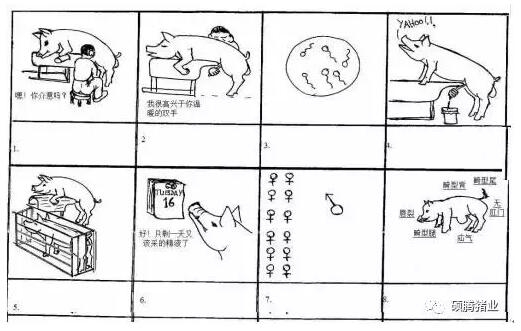 嘿！你介意吗？
1.
我很高兴于你温
暖的双手
2
3.
YAHOO!!
4.
5.
TUESDAY
16
好！只剩一天又
该采的精液了
6.
7.
畸型背
畸型尾
唇裂
无
肛门
畸型腿
疝气
8.
硕腾猪业